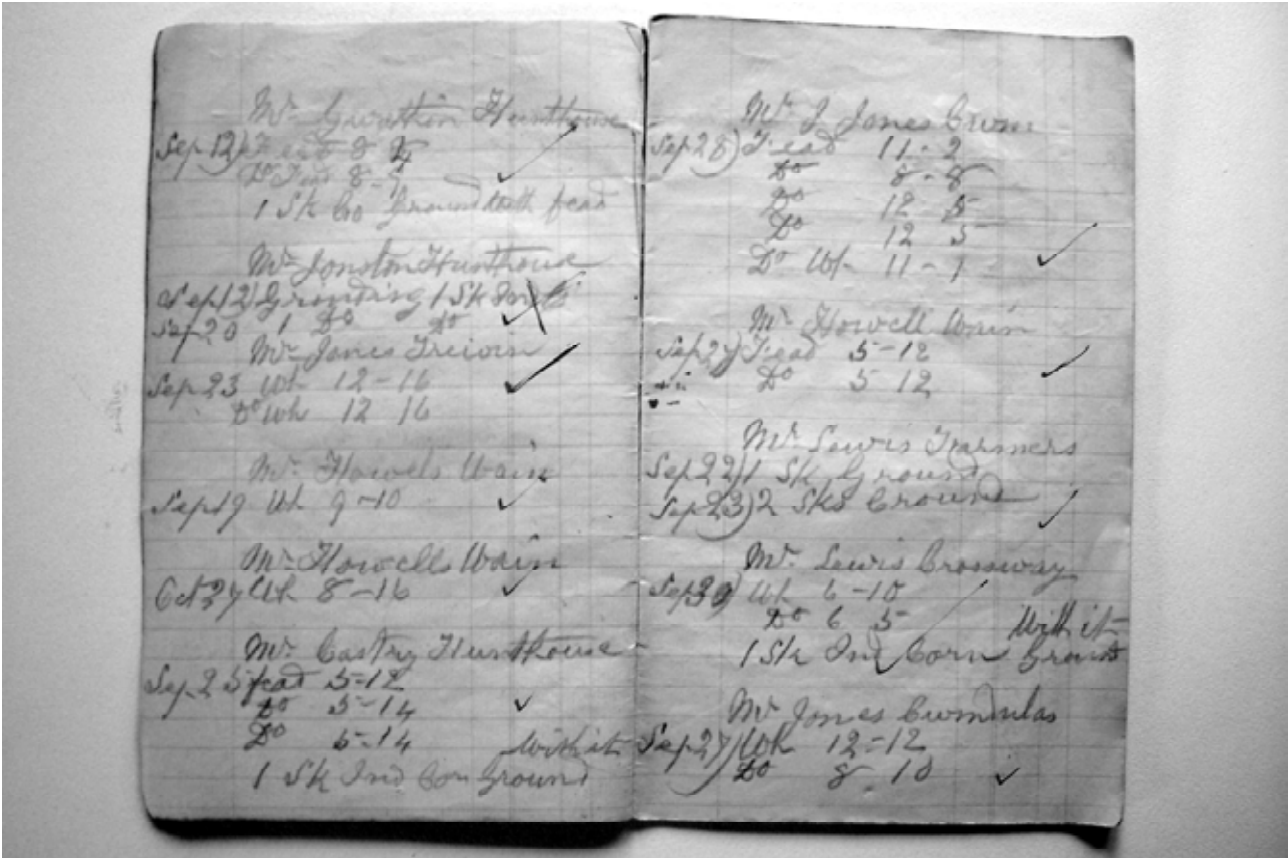 Mr Hunthouse
Sep 12) Fead 8
Do Fead 8-
1 Sk Co Ground with fead
Mr Jonston Hunthouse
Sep 12) Grinding 1 Sk
Sep 20 1 Do Do
Mr Jones Treivin
Sep 23 Wh 12-16
Do Wh 12 16
Mr Howels Wain
Sep 19 Wh 9-10
Mr Howells Wain
Oct 27 Wh 8-16
Mr Castry Hunthouse
Sep 25 fead 5-12
Do 5-14
Do 5-14 With it
1 Sk Ind Corn Ground
Mr J Jones Cwm
Sep 28) Fead 11-2
Do 8-8
Do 12-5
Do 12 5
Do Wh 11-1
Mr Howell Wain
Sep 27) Fead 5-12
Do 5 12
Mr Lewis Farmers
Sep 22) 1 Sk Ground
Sep 23) 2 Sks Ground
Mr Lewis Crossway
Sep 30) Wh 6-10
Do 6 5 With it
1 Sk Ind Corn Ground
Mr Jones Cwmdulas
Sep 27) Wh 12-12
Do 8-10